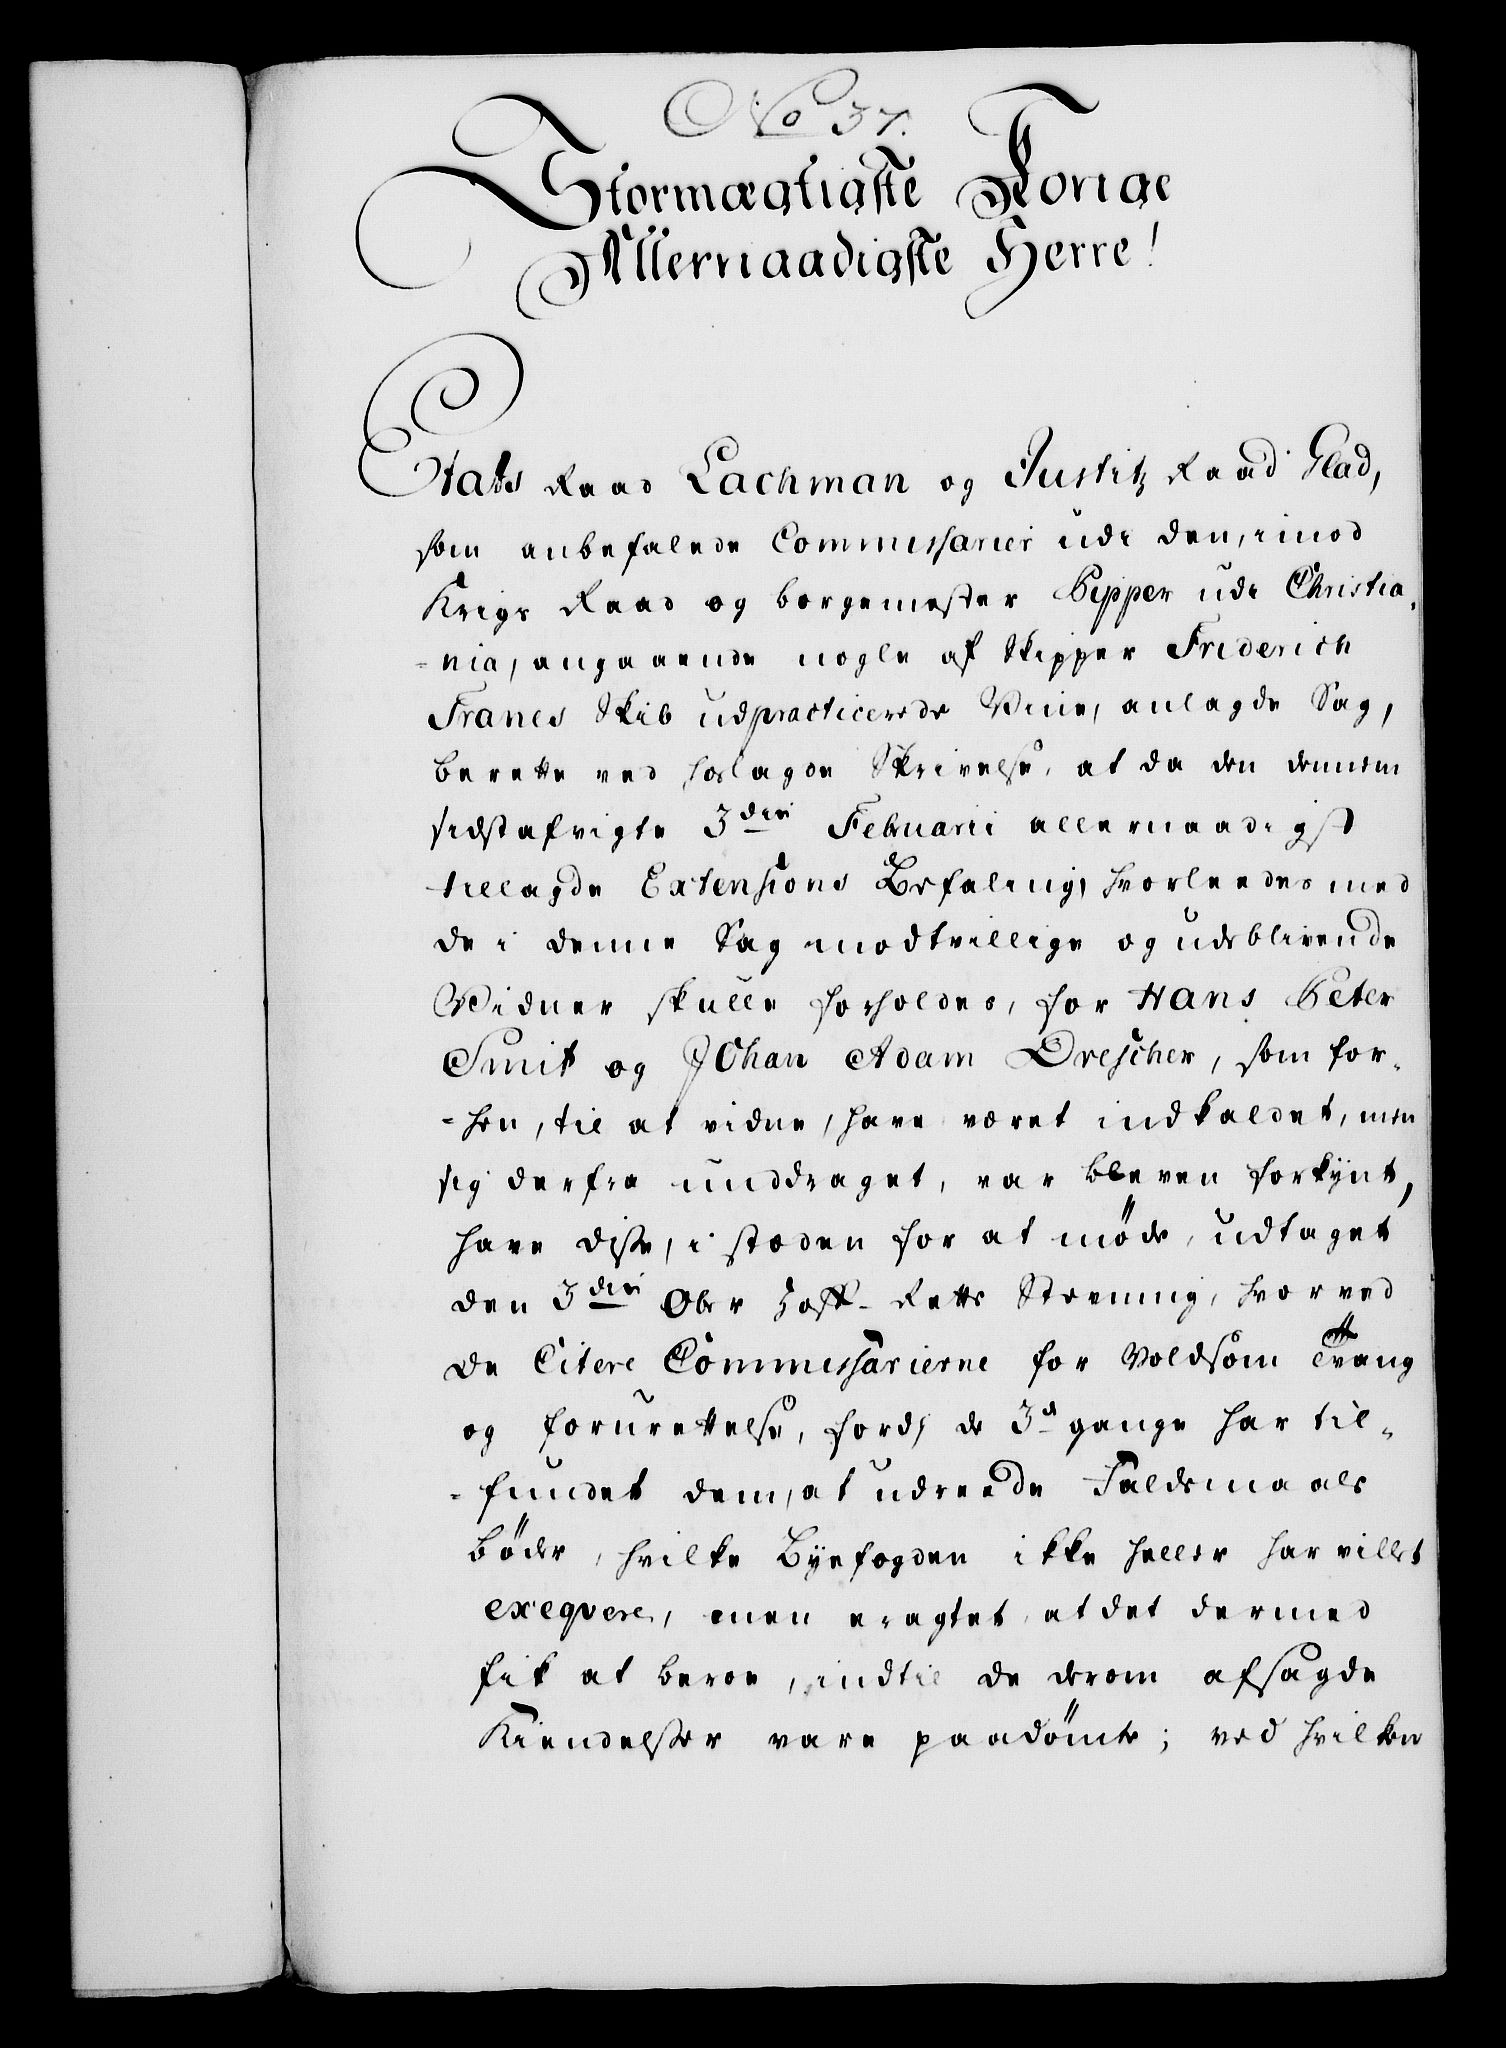 No 37.
Stormægtigste Konge
Allernaadigste Herre!
Etats Raad Lachman og Justitz Raad Glad,
som anbefalede Commissarier udi den, imod
Krigs Raad og borgemester Pipper udi Christia„
-nia, angaaende nogle af Skipper Friderich
Franes Skib udpracticerede Viine, anlagde Sag,
berette ved hoslagde Skrivelse, at da den dennem
sidstafvigte 3die Februarii allernaadigst
tillagde Extensions Befaling, hvorleedes med
de i denne Sag modtvillige og udeblivende
Vidner skulle forholdes, for Hans Peter
Smit og Johan Adam Drescher, som for„
-hen, til at vidne, have været indkaldet, men
sig derfra unddraget, var bleven forkynt,
have disse, i stæden for at møde, udtaget
den 3die Ober Hoff-Retts Stevning, hvorved
de Citere Commissarierne for Voldsom Tvang
og forurettelse, fordi de 3de gange har til„
-fundet dem, at udreede Faldsmaals
bøder, hvilke Byefogden ikke heller har villet
exeqvere, men eragtet, at det dermed
fik at beroe, indtil de derom afsagde
Kiendelser vare paadømte; ved hvilken